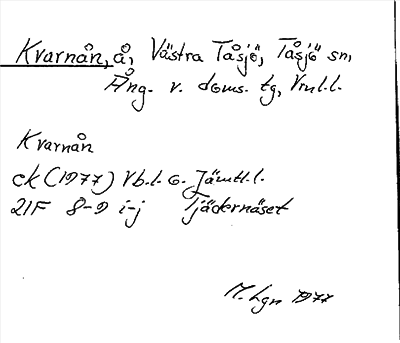 Kvarnån, å, Västra Tåsjö, Tåsjö sn,
Ång. v. doms. tg, Vnl.l.
Kvarnån
ck (1977) Vb.l. o. Jämtl.l.
21F 8-9 i-j Tjädernäset
M. Lgn 1977